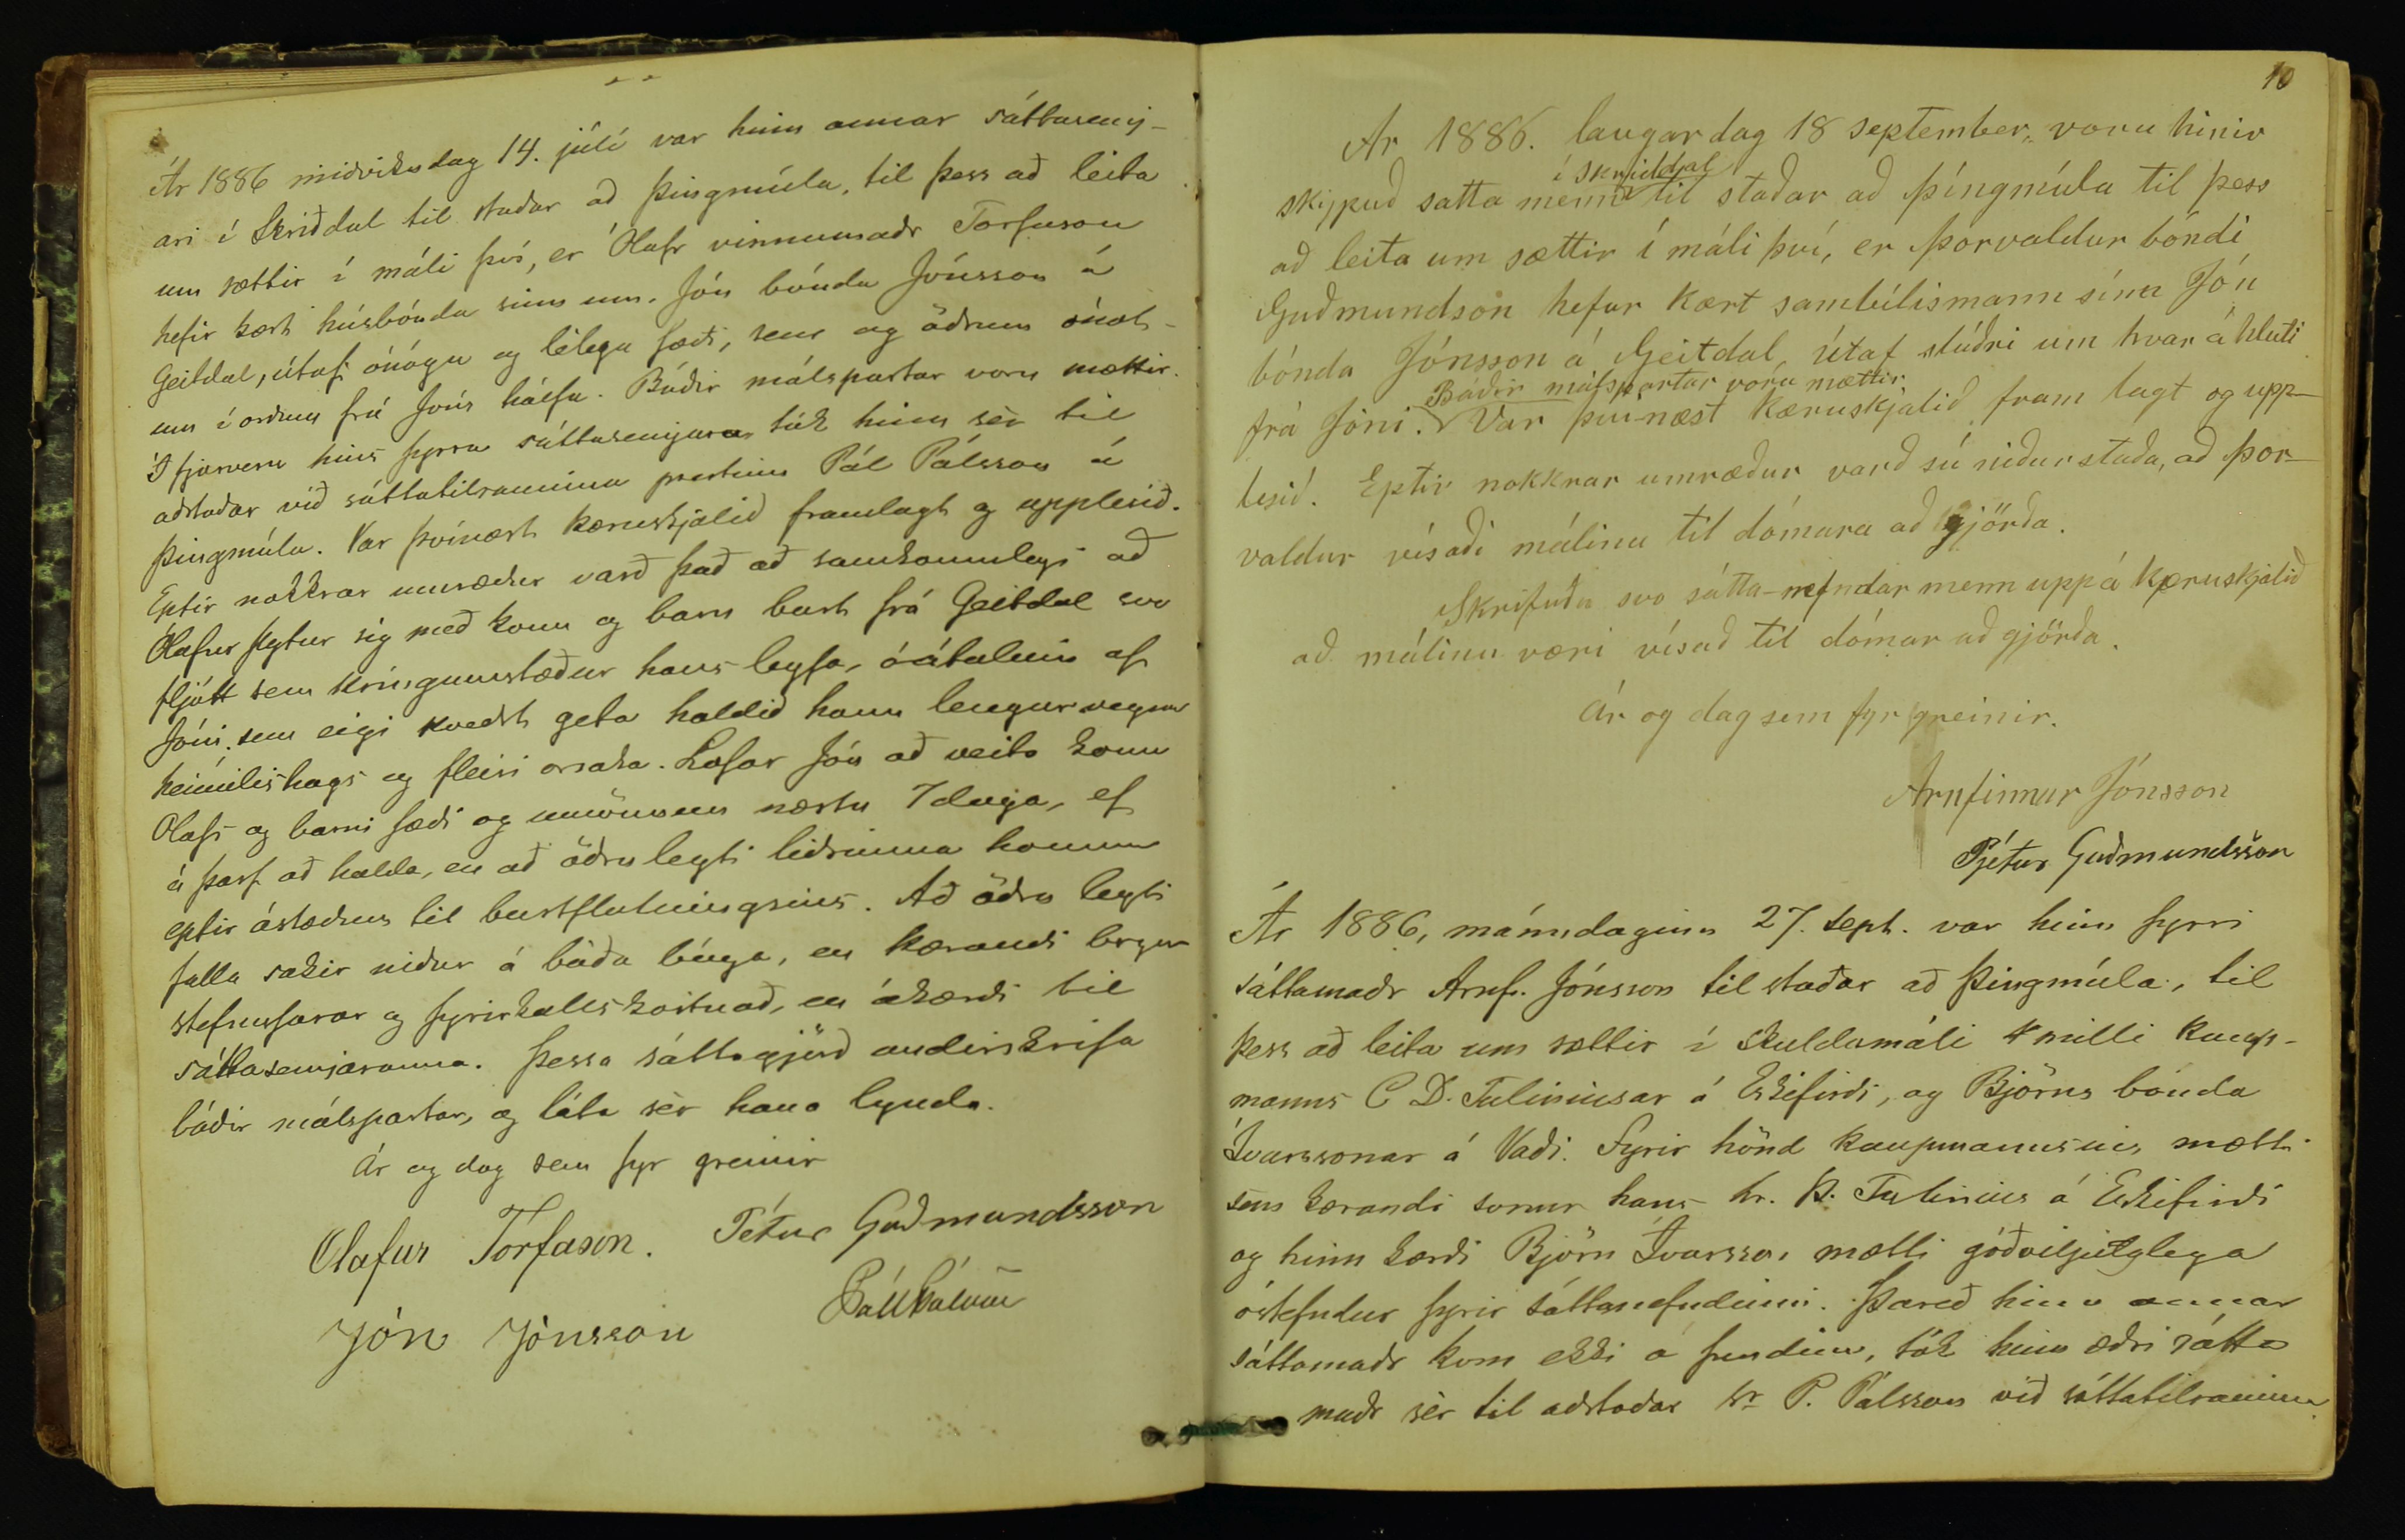 Ár 1886 miðvikudag 14. júlí var hinn annar sáttasemj-
ari í Skriðdal til staðar að Þingmúla, til þess að leita
um sættir í máli því, er Ólafr vinnumaðr Torfason
hefir kært húsbónda sinn um. Jón bónda Jónsson á
Geitdal, útaf ónógu og lélegu fæði, sem og öðrum ónot-
um í orðum frá Jóns hálfu. Báðir málspartar voru mættir.
Í fjarveru hins fyrra sáttasemjara tók hinn sèr til
aðstoðar við sáttatilraunina prestinn Pál Pálsson á
Þingmúla. Var þvínæst kæruskjalið framlagt og upplesið.
Eptir nokkrar umræður varð það að samkomulagi að
Ólafur flytur sig með konu og barn burt frá Geitdal svo
fljótt sem kringumstæður hans leyfa, óátalinn af
Jóni, sem eigi kveðst geta haldið hann lengur vegna
heimilishags og fleiri orsaka. Lofar Jón að veita konu
Olafs og barni fæði og umönnun næstu 7 daga, ef
á þarf að halda, en að öðru leyti liðsinna honum
eptir ástæðum til burtflutningsins. Að öðru leyti
falla sakir niður á báða bóga, en kærandi borgar
stefnufarar og fyrirkallskostnað, en ákærði til
sáttasemjaranna. Þessa sáttagjörð undirskrifa
báðir málspartar, og láta sèr hana lynda.
Ár og dag sem fyr greinir
Olafur Torfason. Pétur Guðmundsson
Jón Jónsson Páll Pálsson
10
Ar 1886. laugardag 18 september. voru hinir
í Skriddal
skipuð satta menn til staðar að Þíngmúla til þess
að leita um sættir í máli því, er Þorvaldur bóndi
Guðmundson hefur kært sambílismann sinn Jón
bónda Jónsson á Geitdal, útaf slúðri um hvar á hluti
Báðir málspartar vóru mættir
frá Jóni. Var þvi-næst Kæruskjalið fram lagt og upp-
lesið. Eptir nokkrar umræður varð sú niðurstaða, að Þor-
valdur vísaði málinu til dómara að gjörða.
Skrifuðu svo sátta-nefndar menn uppá Kæruskjalið
að málinu væri vísað til dómar að gjörða.
Ár og dag sem fyr greinir.
Arnfinnur Jónsson
Pjétur Guðmundsson
Ár 1886, mánudaginn 27. sept. var hinn fyrri
sáttamaðr Arnf. Jónsson til staðar að Þingmúla, til
þess að leita um sættir í skuldamáli milli kaup-
manns C D. Tuliniusar á Eskifirði, og Björns bónda
Ívarssonar á Vaði. Fyrir hönd kaupmannsins mætti
sem kærandi sonur hans hr. Þ. Tulinius á Eskifirði
og hinn kærði Björn Ívarsson mætti góðviljuglega
óstefndur fyrir sáttanefndinni. Þareð hinn annar
sáttamaðr kom ekki á fundinn, tók hinn æðri sátta
maðr sèr til aðstoðar sr P. Pálsson við sáttatilraunina